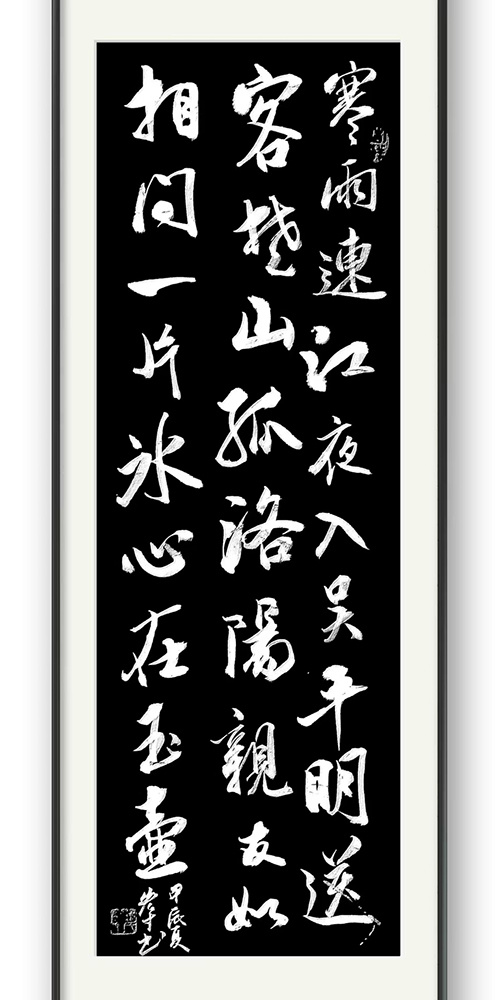 寒雨連江夜入吴平明送
客楚山孤洛陽親友如
相問一片冰心在玉壺
甲辰夏